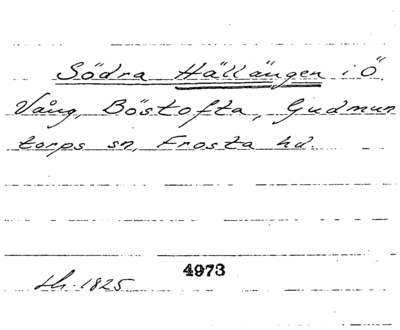 Södra Hällängen i Ö.
Vång, Böstofta, Gudmun
torps sn, Frosta hd.
4973
Lh. 1825